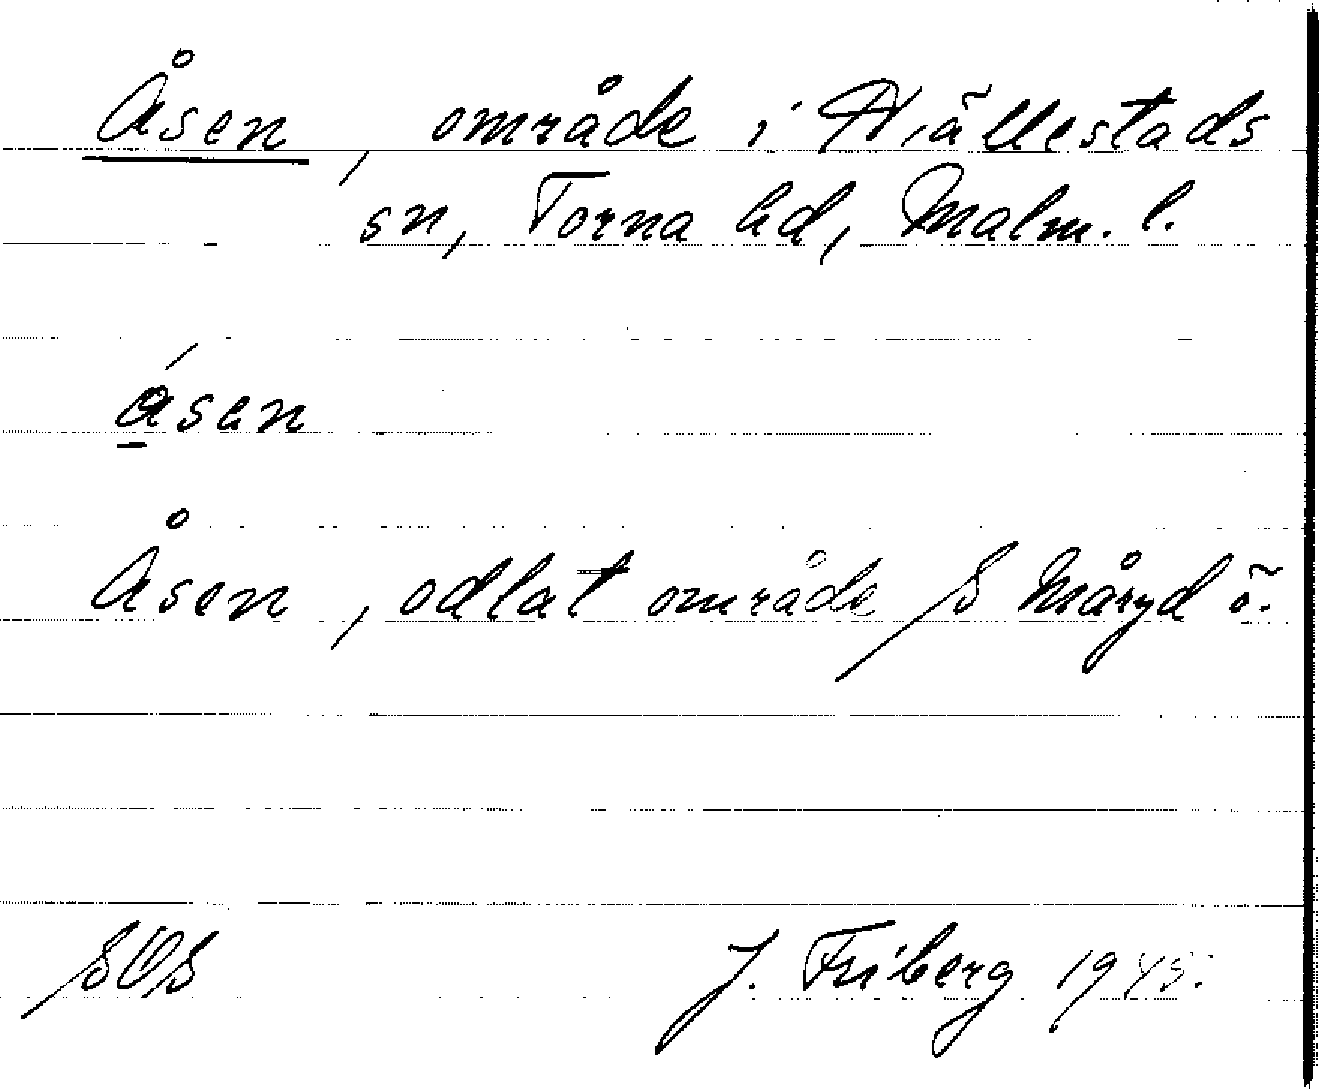 Åsen, område i Hjällestads
sn, Torna hd, Malm. l.
ásen
Åsen, odlat område S Måryd ö.
SOS J. Friberg 1945.